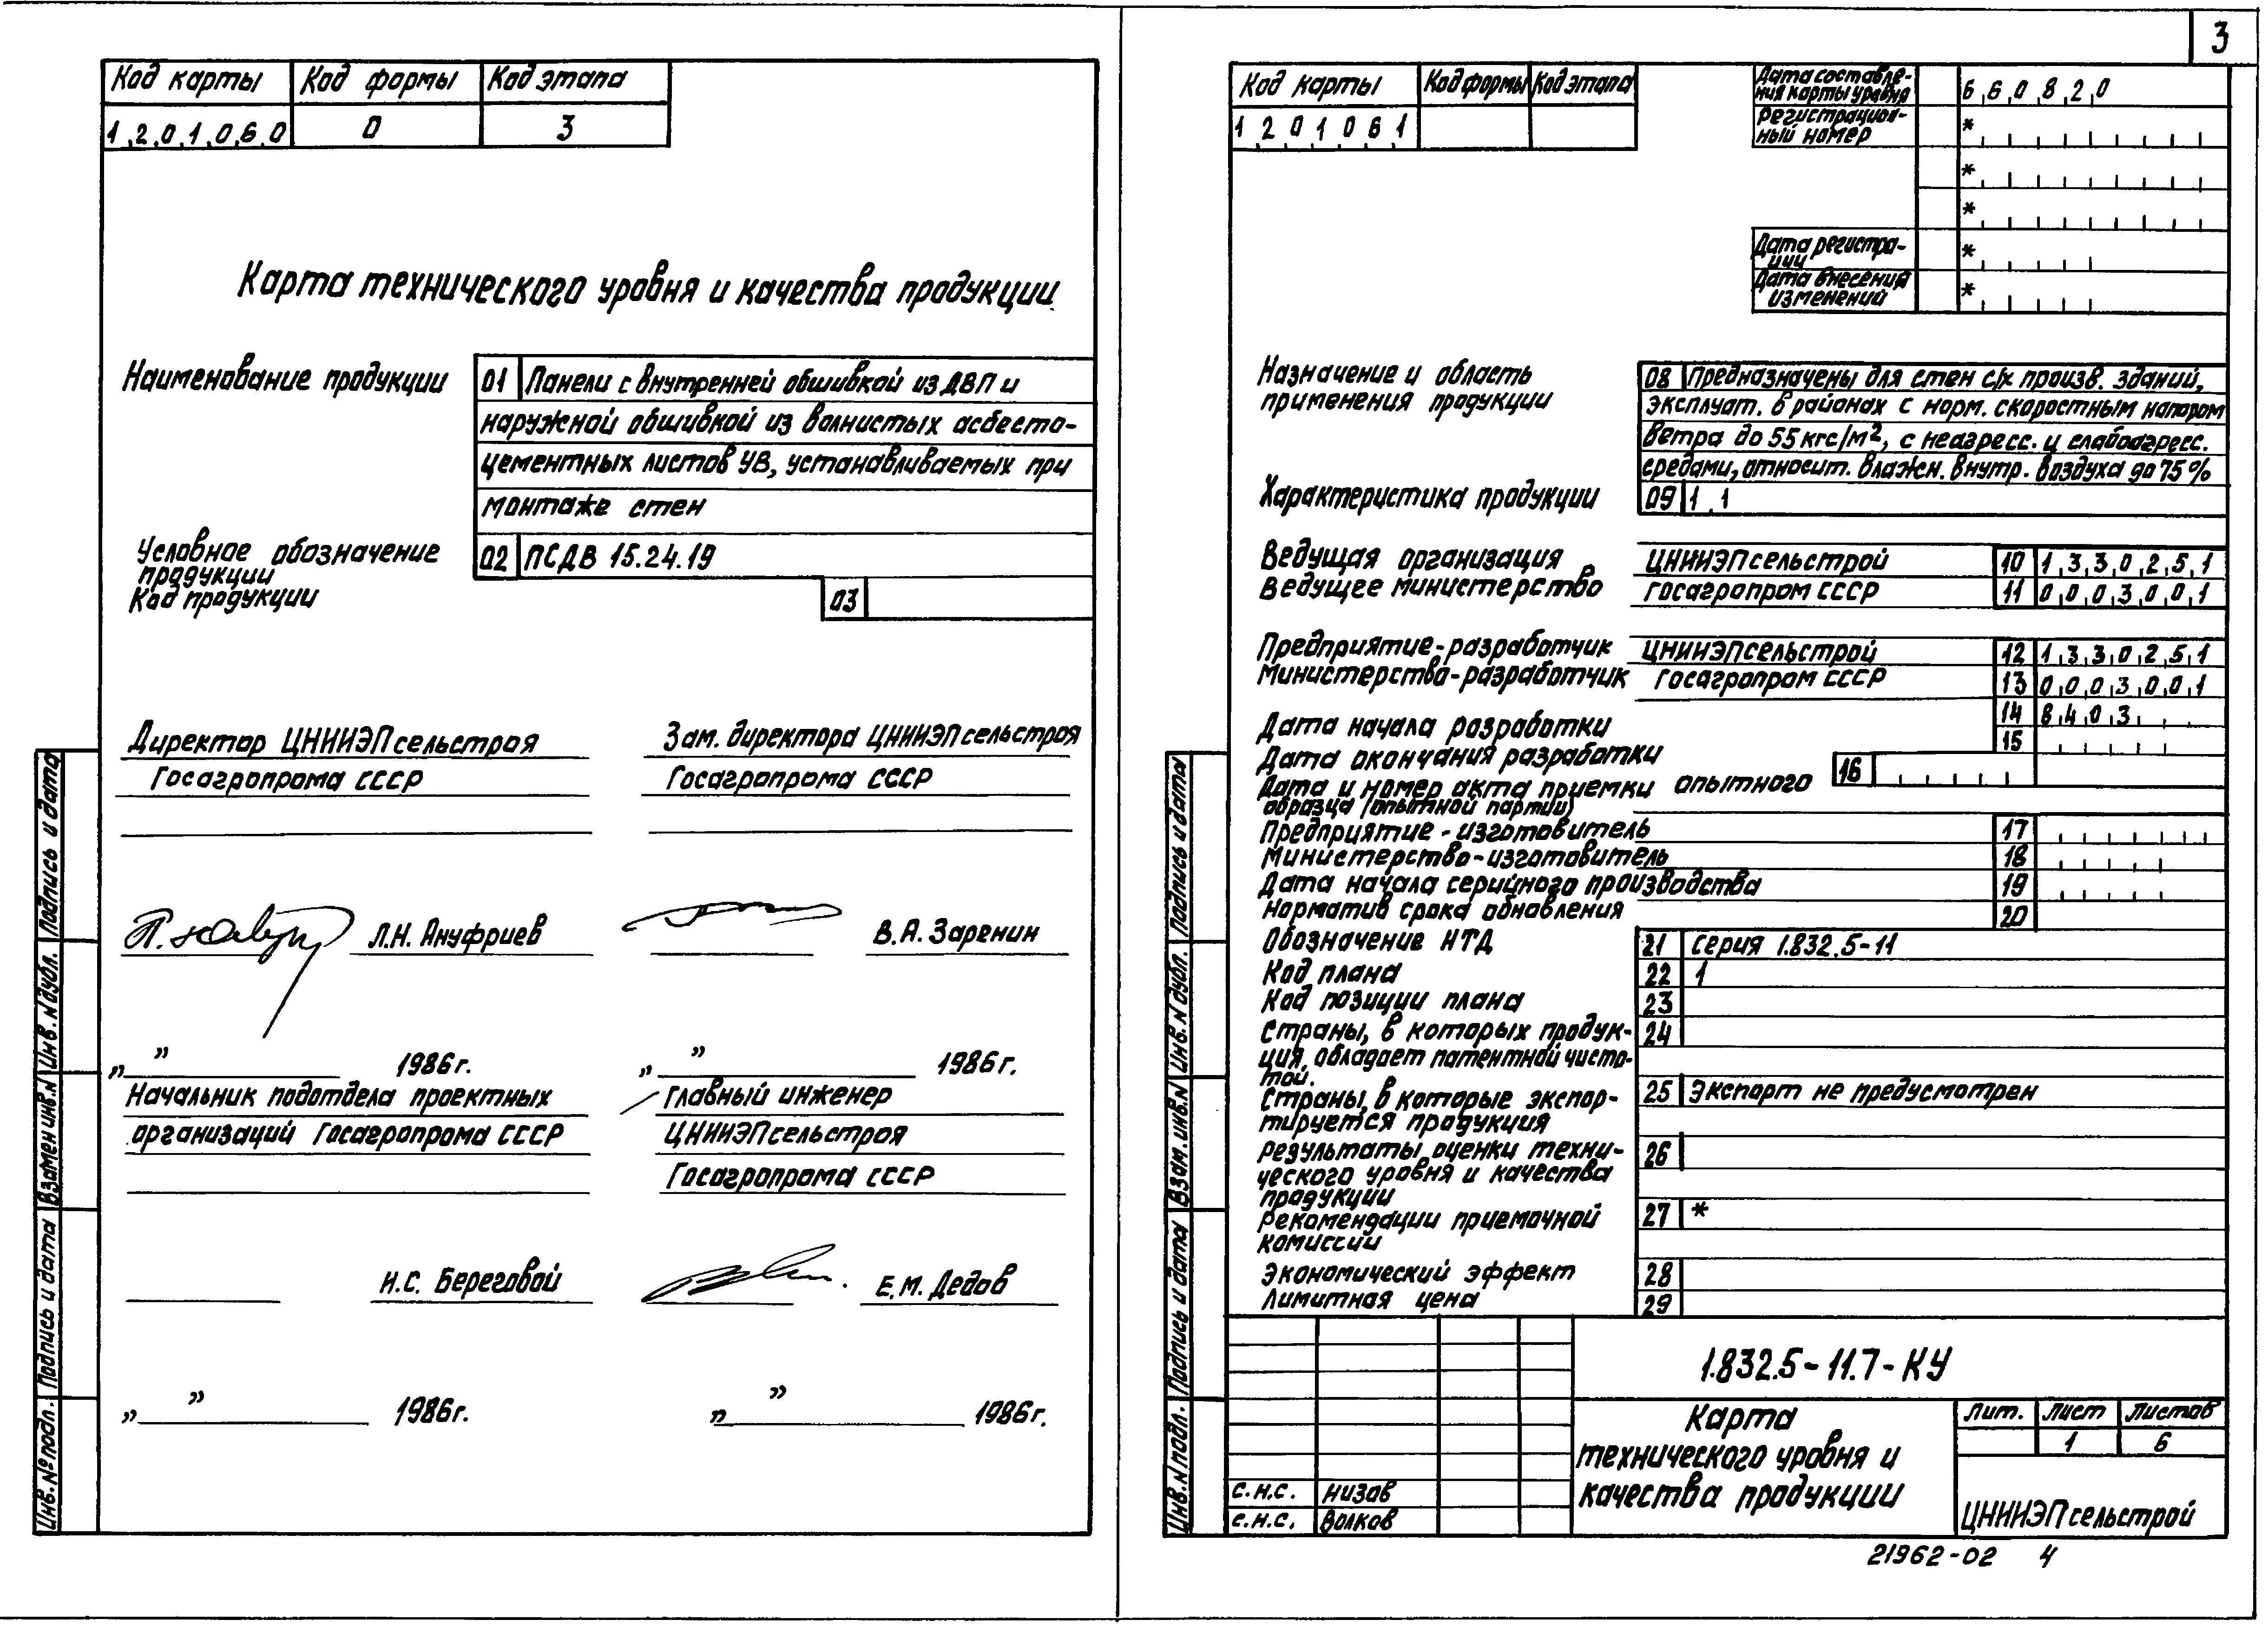 3
Код карты Код формы Код этапа
1.2.0.1.0.6.0 0 3
Карта технического уровня и качества продукции
Наименование продукции 01 Панели с внутренней обшивкой из ДВП и
наружной обшивкой из волнистых асбесто-
цементных листов УВ, устанавливаемых при
монтаже стен
Условное обозначение
продукции 02 ПСДВ 15.24.19
Код продукции 03
Директор ЦНИИЭПсельстроя
Госагропрома СССР
Зам. директора ЦНИИЭПсельстроя
Госагропрома СССР
Л.Н. Ануфриев
В.А. Заренин
„ " 1986г.
„ " 1986г.
Начальник подотдела проектных
организаций Госагропрома СССР
Главный инженер
ЦНИИЭПсельстроя
Госагропрома СССР
Н.С. Береговой
Е.М. Дедов
„ " 1986г.
„ " 1986г.
Инв.№подл. Подпись и дата Взамен инв.N Инв.Nдубл. Подпись и дата
Код карты Код формы Код этапа
1 2 0 1 0 6 1
Дата составле-
ния карты уровня 6 6 0 8 2 0
Регистрацион-
ный номер *
*
*
Дата регистра-
ции *
Дата внесения
изменений *
Назначение и область
применения продукции
08 Предназначены для стен с/х произв. зданий,
эксплуат. в районах с норм. скоростным напором
ветра до 55 кгс/м², с неагресс. и слабоагресс.
средами, относит. влажн. внутр. воздуха до 75%
Характеристика продукции 09 1.1
Ведущая организация ЦНИИЭПсельстрой 10 1,3,3,0,2,5,1
Ведущее министерство Госагропром СССР 11 0,0,0,3,0,0,1
Предприятие-разработчик ЦНИИЭПсельстрой 12 1,3,3,0,2,5,1
Министерство-разработчик Госагропром СССР 13 0,0,0,3,0,0,1
Дата начала разработки 14 8,4,0,3
Дата окончания разработки 15
Дата и номер акта приемки опытного 16
образца (опытной партии)
Предприятие-изготовитель 17
Министерство-изготовитель 18
Дата начала серийного производства 19
Норматив срока обновления 20
Обозначение НТД 21 Серия 1.832.5-11
Код плана 22 1
Код позиции плана 23
Страны, в которых продук- 24
ция, обладает патентной чисто-
той.
Страны, в которые экспор- 25 Экспорт не предусмотрен
тируется продукция
Результаты оценки техни- 26
ческого уровня и качества
продукции
Рекомендации приемочной 27 *
комиссии
Экономический эффект 28
Лимитная цена 29
1.832.5-11.7-КУ
Карта
технического уровня и
качества продукции
Лит. Лист Листов
1 6
ЦНИИЭПсельстрой
с.н.с. Низов
с.н.с. Волков
Инв.Nподл. Подпись и дата Взам.инв.N Инв.Nдубл. Подпись и дата
21962-02 4